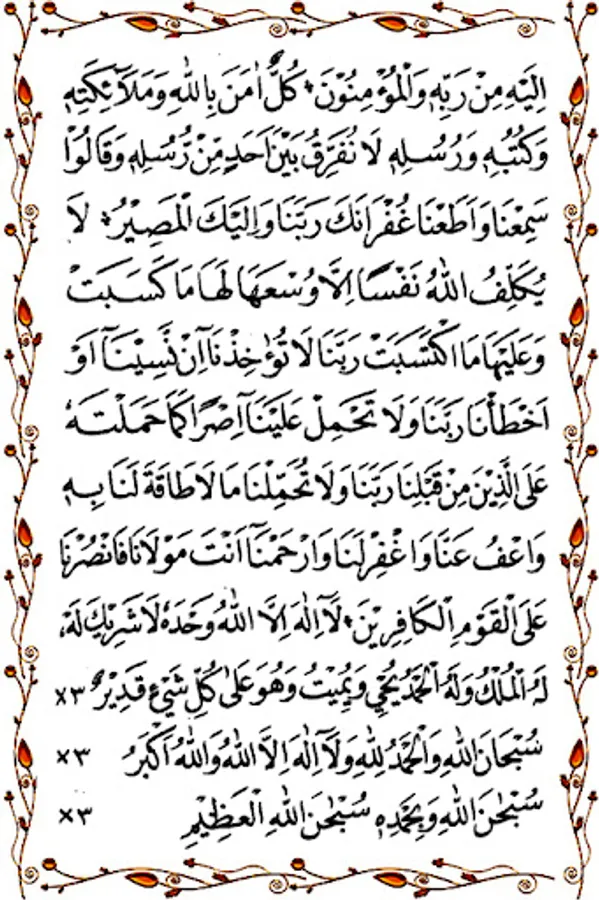 اِلَيْهِ مِنْ رَبِّهٖ وَالْمُؤْمِنُوْنَ ۚ كُلٌّ اٰمَنَ بِاللهِ وَمَلَآئِكَتِهٖ
وَكُتُبِهٖ وَرُسُلِهٖ لَا نُفَرِّقُ بَيْنَ اَحَدٍ مِّنْ رُّسُلِهٖ وَقَالُوْا
سَمِعْنَا وَاَطَعْنَا غُفْرَانَكَ رَبَّنَا وَاِلَيْكَ الْمَصِيْرُ ۚ لَا
يُكَلِّفُ اللهُ نَفْسًا اِلَّا وُسْعَهَا لَهَا مَا كَسَبَتْ
وَعَلَيْهَا مَا اكْتَسَبَتْ رَبَّنَا لَا تُؤَاخِذْنَآ اِنْ نَّسِيْنَآ اَوْ
اَخْطَأْنَا رَبَّنَا وَلَا تَحْمِلْ عَلَيْنَآ اِصْرًا كَمَا حَمَلْتَهٗ
عَلَى الَّذِيْنَ مِنْ قَبْلِنَا رَبَّنَا وَلَا تُحَمِّلْنَا مَا لَا طَاقَةَ لَنَا بِهٖ
وَاعْفُ عَنَّا وَاغْفِرْ لَنَا وَارْحَمْنَآ اَنْتَ مَوْلَانَا فَانْصُرْنَا
عَلَى الْقَوْمِ الْكَافِرِيْنَ ۚ لَآ اِلٰهَ اِلَّا اللهُ وَحْدَهٗ لَا شَرِيْكَ لَهٗ،
لَهُ الْمُلْكُ وَلَهُ الْحَمْدُ يُحْيِيْ وَيُمِيْتُ وَهُوَ عَلٰى كُلِّ شَيْءٍ قَدِيْرٌ ×٣
سُبْحَانَ اللهِ وَالْحَمْدُ لِلّٰهِ وَلَآ اِلٰهَ اِلَّا اللهُ وَاللهُ اَكْبَرُ ×٣
سُبْحٰنَ اللهِ وَبِحَمْدِهٖ سُبْحٰنَ اللهِ الْعَظِيْمِ ×٣